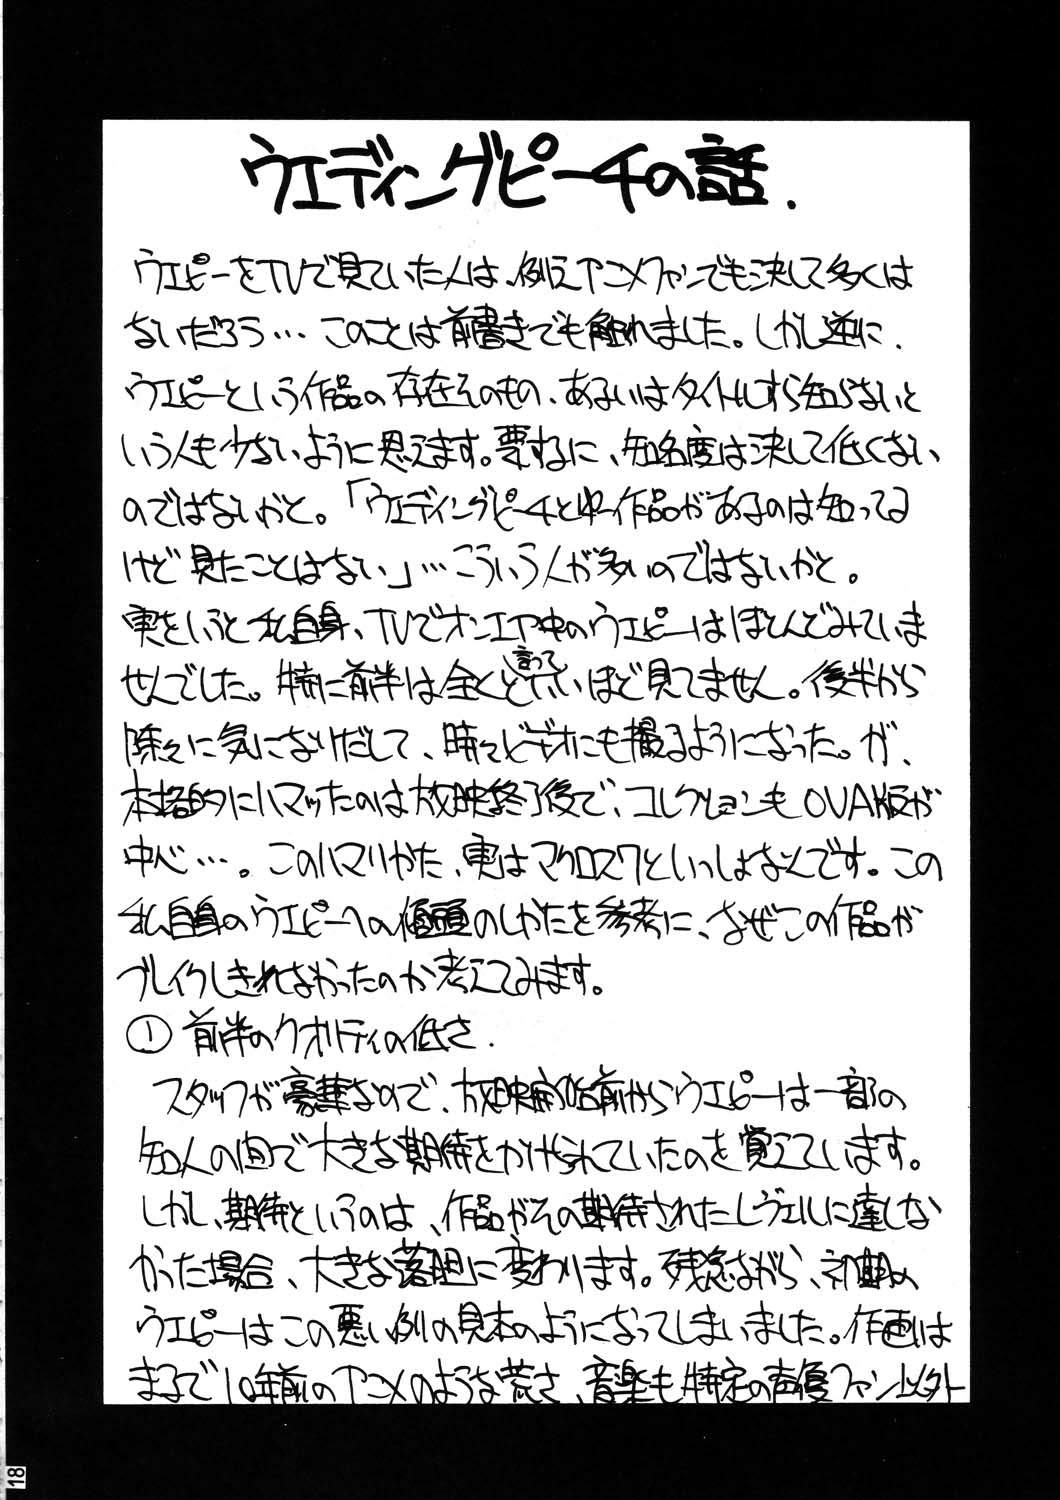 ウエディングピーチの話.
ウエピーをTVで見ていた人は、例えアニメファンでも決して多くは
ないだろう…このことは前書きでも触れました。しかし逆に、
ウエピーという作品の存在そのもの、あるいはタイトルすら知らないと
いう人も少ないように思えます。要するに、知名度は決して低くない
のではないかと。「ウエディングピーチとゆー作品があるのは知ってる
けど見たことはない」…こういう人が多いのではないかと。
実をいうと私自身、TVでオンエア中のウエピーはほとんどみていま
せんでした。特に前半は全くと言っていいほど見てません。後半から
除々に気になりだして、時々ビデオにも撮るようになった。が、
本格的にハマッたのは放映終了後で、コレクションもOVA版が
中心…。このハマリかた、実はマクロス7といっしょなんです。この
私自身のウエピーへの傾頭のしかたを参考に、なぜこの作品が
ブレイクしきれなかったのか考えてみます。
① 前半のクオリティの低さ.
スタッフが豪華なので、放映開始前からウエピーは一部の
知人の間で大きな期待をかけられていたのを覚えています。
しかし、期待というのは、作品がその期待されたレヴェルに達しな
かった場合、大きな落胆に変わります。残念ながら、初期の
ウエピーはこの悪い例の見本のようになってしまいました。作画は
まるで10年前のアニメのような荒さ、音楽も特定の声優ファン以外
18